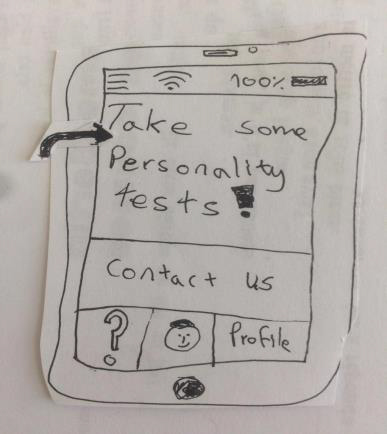 100%
Take some
Personality
tests!
Contact us
? Profile